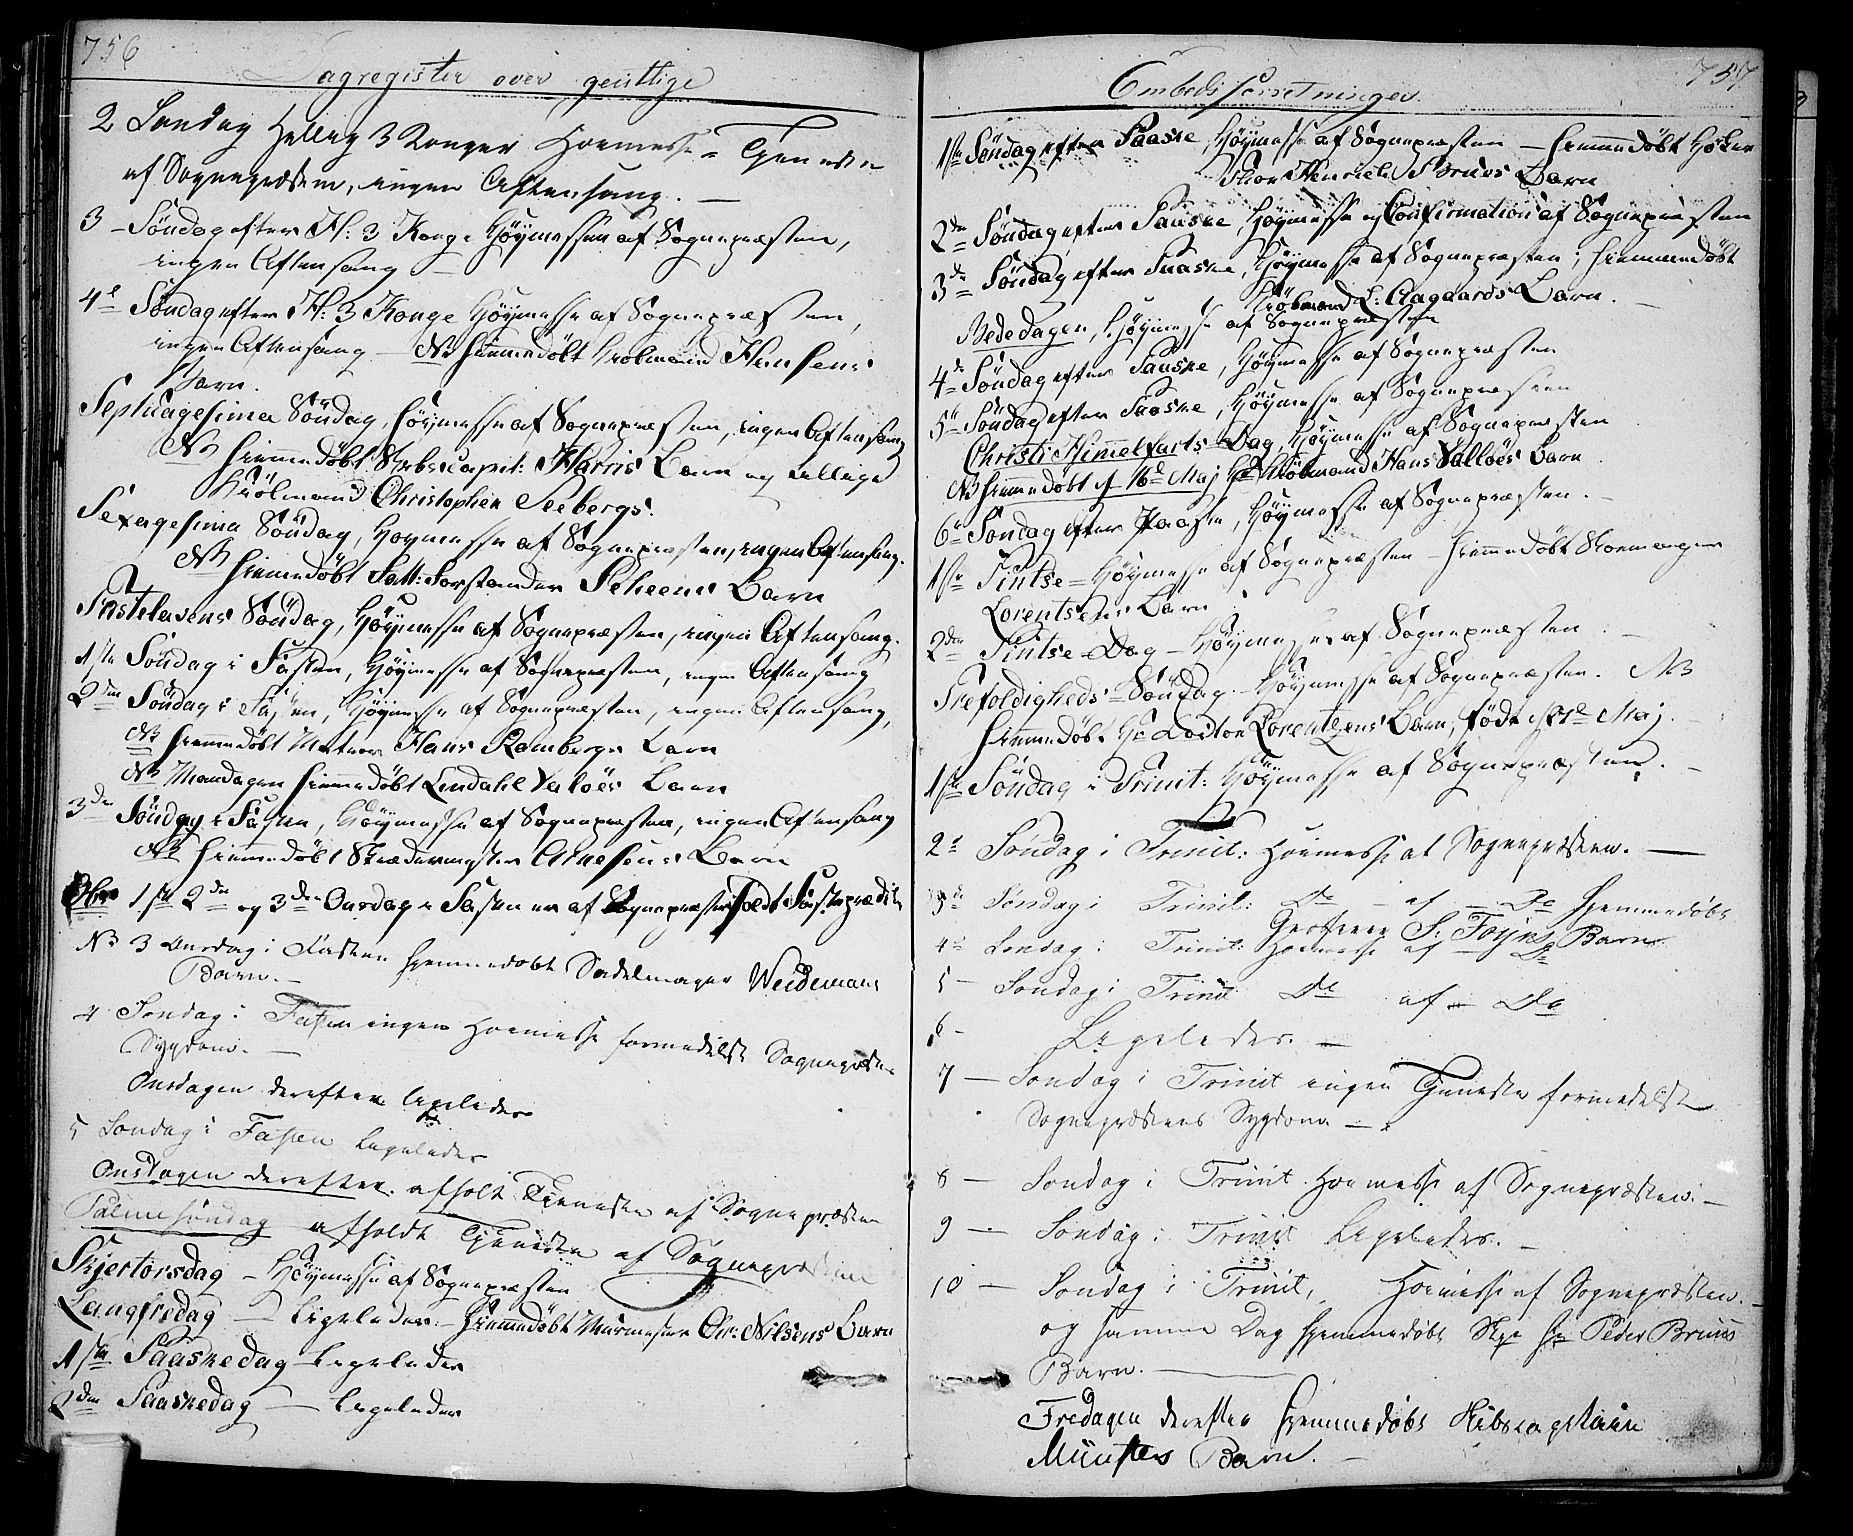 756
Dagregister over geistlige
2 Søndag Hellig 3 Konger Høimesse = Tjeneste
af Sognepræsten, ingen Aftensang. —
3 – Søndag efter H: 3 Konge Høÿmesse af Sognepræsten,
ingen Aftensang –
4de Søndag efter H: 3 Konge Høÿmesse af Sognepræsten,
ingen Aftensang – NB hiemmedöbt Hansens
Barn.
Septuagesima Söndag, Höÿmesse af Sognepræsten, ingen Aftensang
NB hiemmedöbt Skibscapit: Harris Barn og tillige
Christopher Seebergs.
Sexagesima Söndag, Høymesse af Sognepræsten, ingen Aftensang.
NB hiemmedöbt Fatt: Forstander Scheens Barn
Fastelavens Söndag, Høÿmesse af Sognepræsten, ingen Aftensang.
1ste Söndag i Fasten, Høÿmesse af Sognepræsten, ingen Aftensang
2den Söndag i Fasten, Høÿmesse af Sognepræsten, ingen Aftensang,
NB hiemmedöbt Hans Rambergs Barn
NB Mandagen hiemmedöbt Lindahl Valöes Barn
3den Söndag i Fasten, Höÿmesse af Sognepræsten, ingen Aftensang
NB hiemmedöbt Skrædermester Arnesens Barn
1ste 2den og 3die Onsdag i Fasten er af Sognepræsten holdt Fasteprædik
NB 3 Onsdag i Fasten hjemmedöbt Sadelmager Weidemans
Barn. –
4 Søndag i Fasten ingen Høimesse formedelst Sognepræstens
Sygdom. —
Onsdagen derefter ligeledes
5 Søndag i Fasten ligeledes
Onsdagen derefter afholdt Tjeneste af Sognepræsten
Palmesøndag afholdt Tjeneste af Sognepræsten
Skjertorsdag – Høÿmesse af Sognepræsten
Langfredag – Ligeledes – hiemmedöbt Murmester Chr: Nilsens Barn
1ste Paaskedag – ligeledes
2den Paaskedag — ligeledes
757
Embedsforretninger.
1ste Søndag efter Paaske, Høÿmesse af Sognepræsten – hiemmedöbt
Henrich Bruns Barn
2den Søndag efter Paaske, Høÿmesse og Confirmation af Sognepræsten
3de Søndag efter Paaske, Høÿmesse af Sognepræsten; hiemmedöbt
L: Aagaards Barn. –
Bededagen, Høÿmesse af Sognepræsten
4de Søndag efter Paaske, Høÿmesse af Sognepræsten
5te Søndag efter Paaske, Høÿmesse af Sognepræsten
Christi Himmelfarts-Dag, Høÿmesse af Sognepræsten
NB hiemmedöbt d. 16de Maj Hans Valløes Barn
6te Søndag efter Paaske, Høÿmesse af Sognepræsten. –
1ste Pintse – Høÿmesse af Sognepræsten – hiemmedöbt
Lorentsens Barn
2den Pintse-Dag – Høÿmesse af Sognepræsten. –
Trefoldigheds-Søndag – Høÿmesse af Sognepræsten. NB
hiemmedöbt Hr Doctor Lorentzens Barn, født 21de Maj.
1ste Søndag i Trinit: Høÿmesse af Sognepræsten. –
2den Søndag i Trinit: Høimesse af Sognepræsten. —
3die Søndag i Trinit: Do – af – Do Hjemmedöbt
S: Foyns Barn
4de Søndag i Trinit: Høimesse af Do
5 – Søndag i Trinit Do af – Do
6 – Ligeledes. –
7 — Søndag i Trinit ingen Tjeneste formedelst
Sognepræstens Sygdom – .
8 — Søndag i Trinit. Høimesse af Sognepræsten. –
9 — Søndag i Trinit Ligeledes. –
10 — Søndag i Trinit, Høimesse af Sognepræsten. –
og samme Dag hjemmedöbt Peder Bruns
Barn. —
Fredagen derefter hjemmedöbt Skibscaptain
Münsters Barn. –